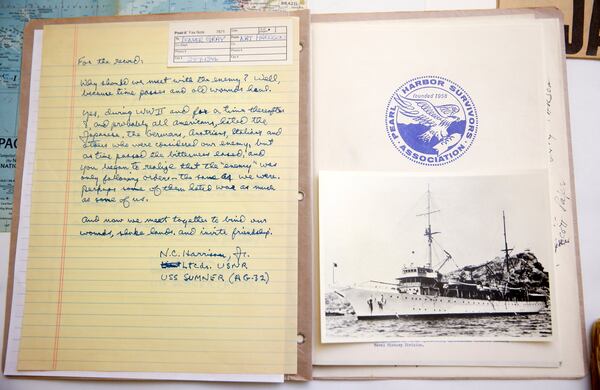 BRAZIL
Post-it Fax Note 7671
Date
To
From ART HARRISON
Co./Dept.
Co.
Phone #
Phone #
Fax #
Fax #
For the record:
Why should we meet with the enemy? Well,
because time passes and old wounds heal.
Yes, during WWII and for a time thereafter
I and probably all americans, hated the
Japanese, the Germans, Austrians, Italians and
others who were considered our enemy, but
as time passed the bitterness eased, and
you begin to realize that the "enemy" was
only following orders - the same as we were.
Perhaps some of them hated war as much
as some of us.
And now we meet together to bind our
wounds, shake hands, and invite friendship.
N.C. Harrison, Jr.
Ltcdr. USNR
USS SUMNER (AG-32)
PEARL HARBOR SURVIVORS ASSOCIATION
founded 1958
Naval History Division.
PAC
JA